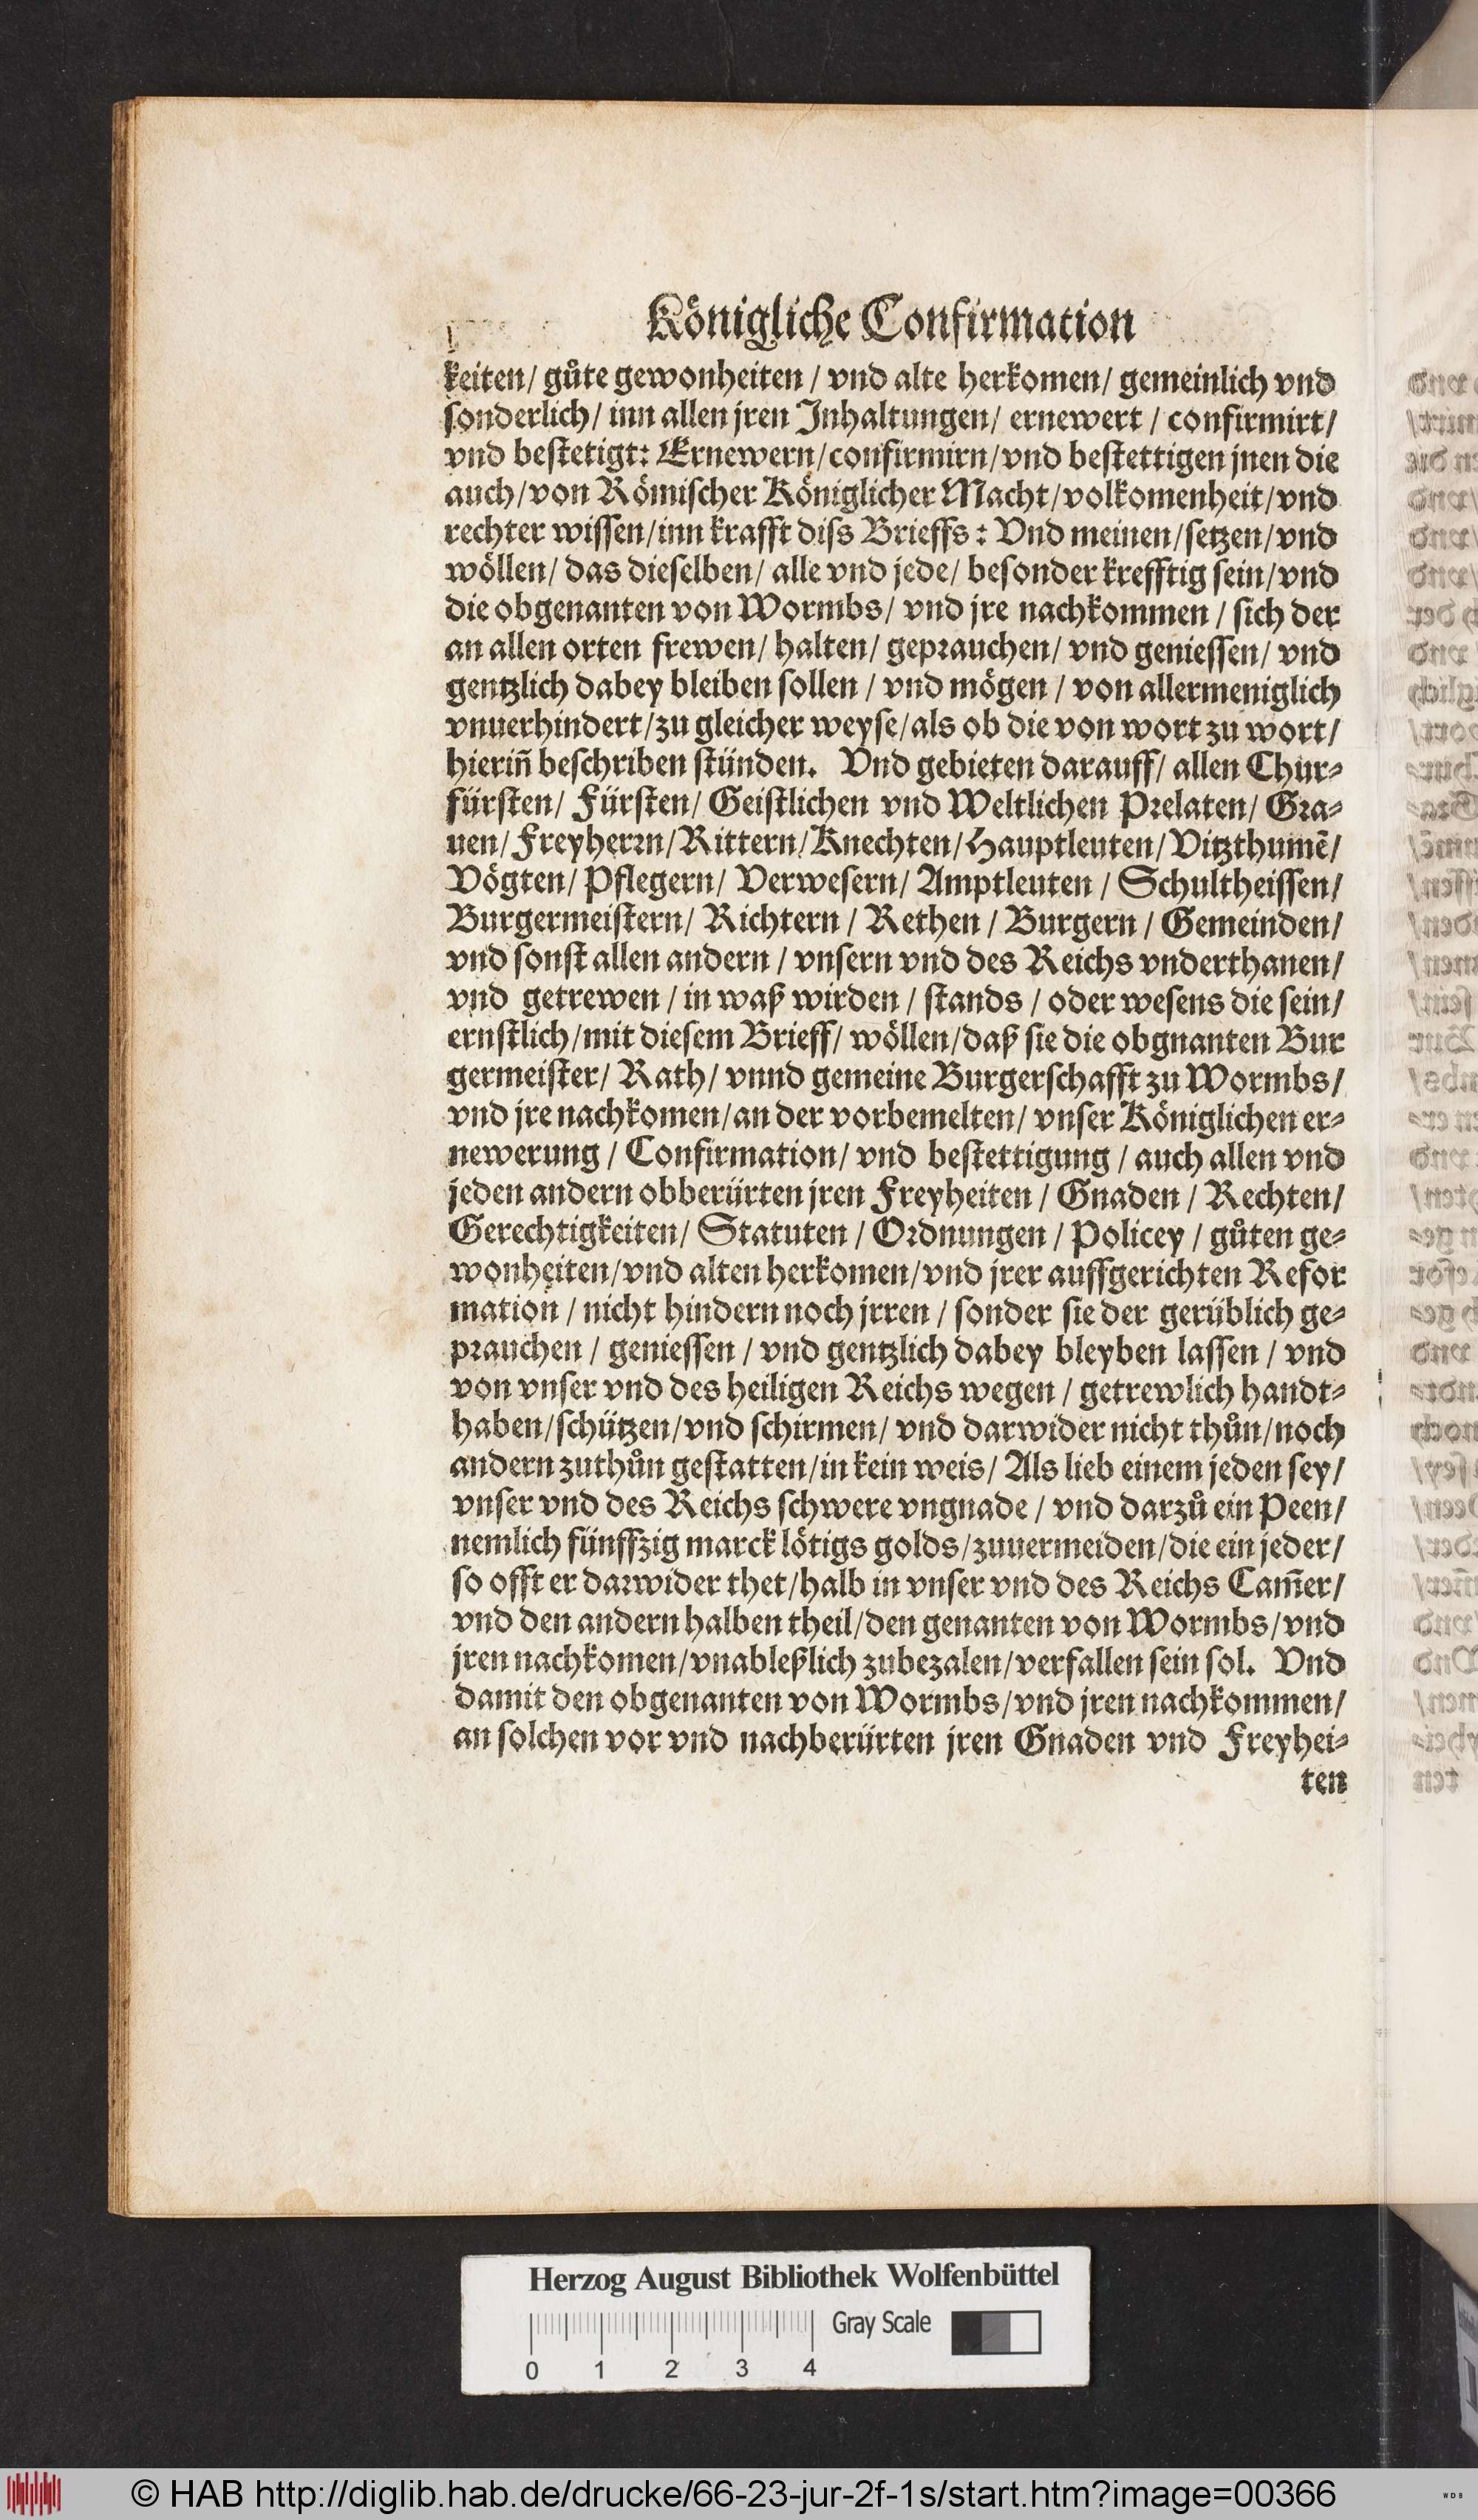 Königliche Confirmation
keiten/ gůte gewonheiten / vnd alte herkomen/ gemeinlich vnd
sonderlich/ inn allen jren Inhaltungen/ ernewert / confirmirt/
vnd bestetigt: Ernewern/confirmirn/vnd bestettigen jnen die
auch/von Römischer Königlicher Macht/volkomenheit/vnd
rechter wissen/inn krafft diss Brieffs : Vnd meinen/setzen/vnd
wöllen/ das dieselben/ alle vnd jede/ besonder krefftig sein/vnd
die obgenanten von Wormbs/ vnd jre nachkommen / sich der
an allen orten frewen/ halten/ geprauchen/ vnd geniessen/ vnd
gentzlich dabey bleiben sollen / vnd mögen / von allermeniglich
vnuerhindert/zu gleicher weyse/als ob die von wort zu wort/
hieriñ beschriben stünden. Vnd gebieten darauff/ allen Chur⸗
fürsten/ Fürsten/ Geistlichen vnd Weltlichen Prelaten/ Gra⸗
uen/Freyherrn/Rittern/Knechten/Hauptleuten/Vitzthumẽ/
Vögten/ Pflegern/ Verwesern/ Amptleuten / Schultheissen/
Burgermeistern/ Richtern / Rethen / Burgern / Gemeinden/
vnd sonst allen andern / vnsern vnd des Reichs vnderthanen/
vnd getrewen / in waß wirden / stands / oder wesens die sein/
ernstlich/mit diesem Brieff/ wöllen/daß sie die obgnanten Bur
germeister/ Rath/ vnnd gemeine Burgerschafft zu Wormbs/
vnd jre nachkomen/an der vorbemelten/ vnser Königlichen er⸗
newerung / Confirmation/ vnd bestettigung / auch allen vnd
jeden andern obberürten jren Freyheiten / Gnaden / Rechten/
Gerechtigkeiten/ Statuten / Ordnungen / Policey / gůten ge⸗
wonheiten/vnd alten herkomen/vnd jrer auffgerichten Refor
mation / nicht hindern noch jrren / sonder sie der gerüblich ge⸗
prauchen / geniessen / vnd gentzlich dabey bleyben lassen / vnd
von vnser vnd des heiligen Reichs wegen / getrewlich handt⸗
haben/schützen/vnd schirmen/ vnd darwider nicht thůn/noch
andern zuthůn gestatten/in kein weis/ Als lieb einem jeden sey/
vnser vnd des Reichs schwere vngnade / vnd darzů ein Peen/
nemlich fünffzig marck lötigs golds/zuuermeiden/die ein jeder/
so offt er darwider thet/halb in vnser vnd des Reichs Cam̃er/
vnd den andern halben theil/den genanten von Wormbs/vnd
jren nachkomen/vnableßlich zubezalen/verfallen sein sol. Vnd
damit den obgenanten von Wormbs/vnd jren nachkommen/
an solchen vor vnd nachberürten jren Gnaden vnd Freyhei⸗
ten
Herzog August Bibliothek Wolfenbüttel
Gray Scale
0 1 2 3 4
© HAB http://diglib.hab.de/drucke/66-23-jur-2f-1s/start.htm?image=00366